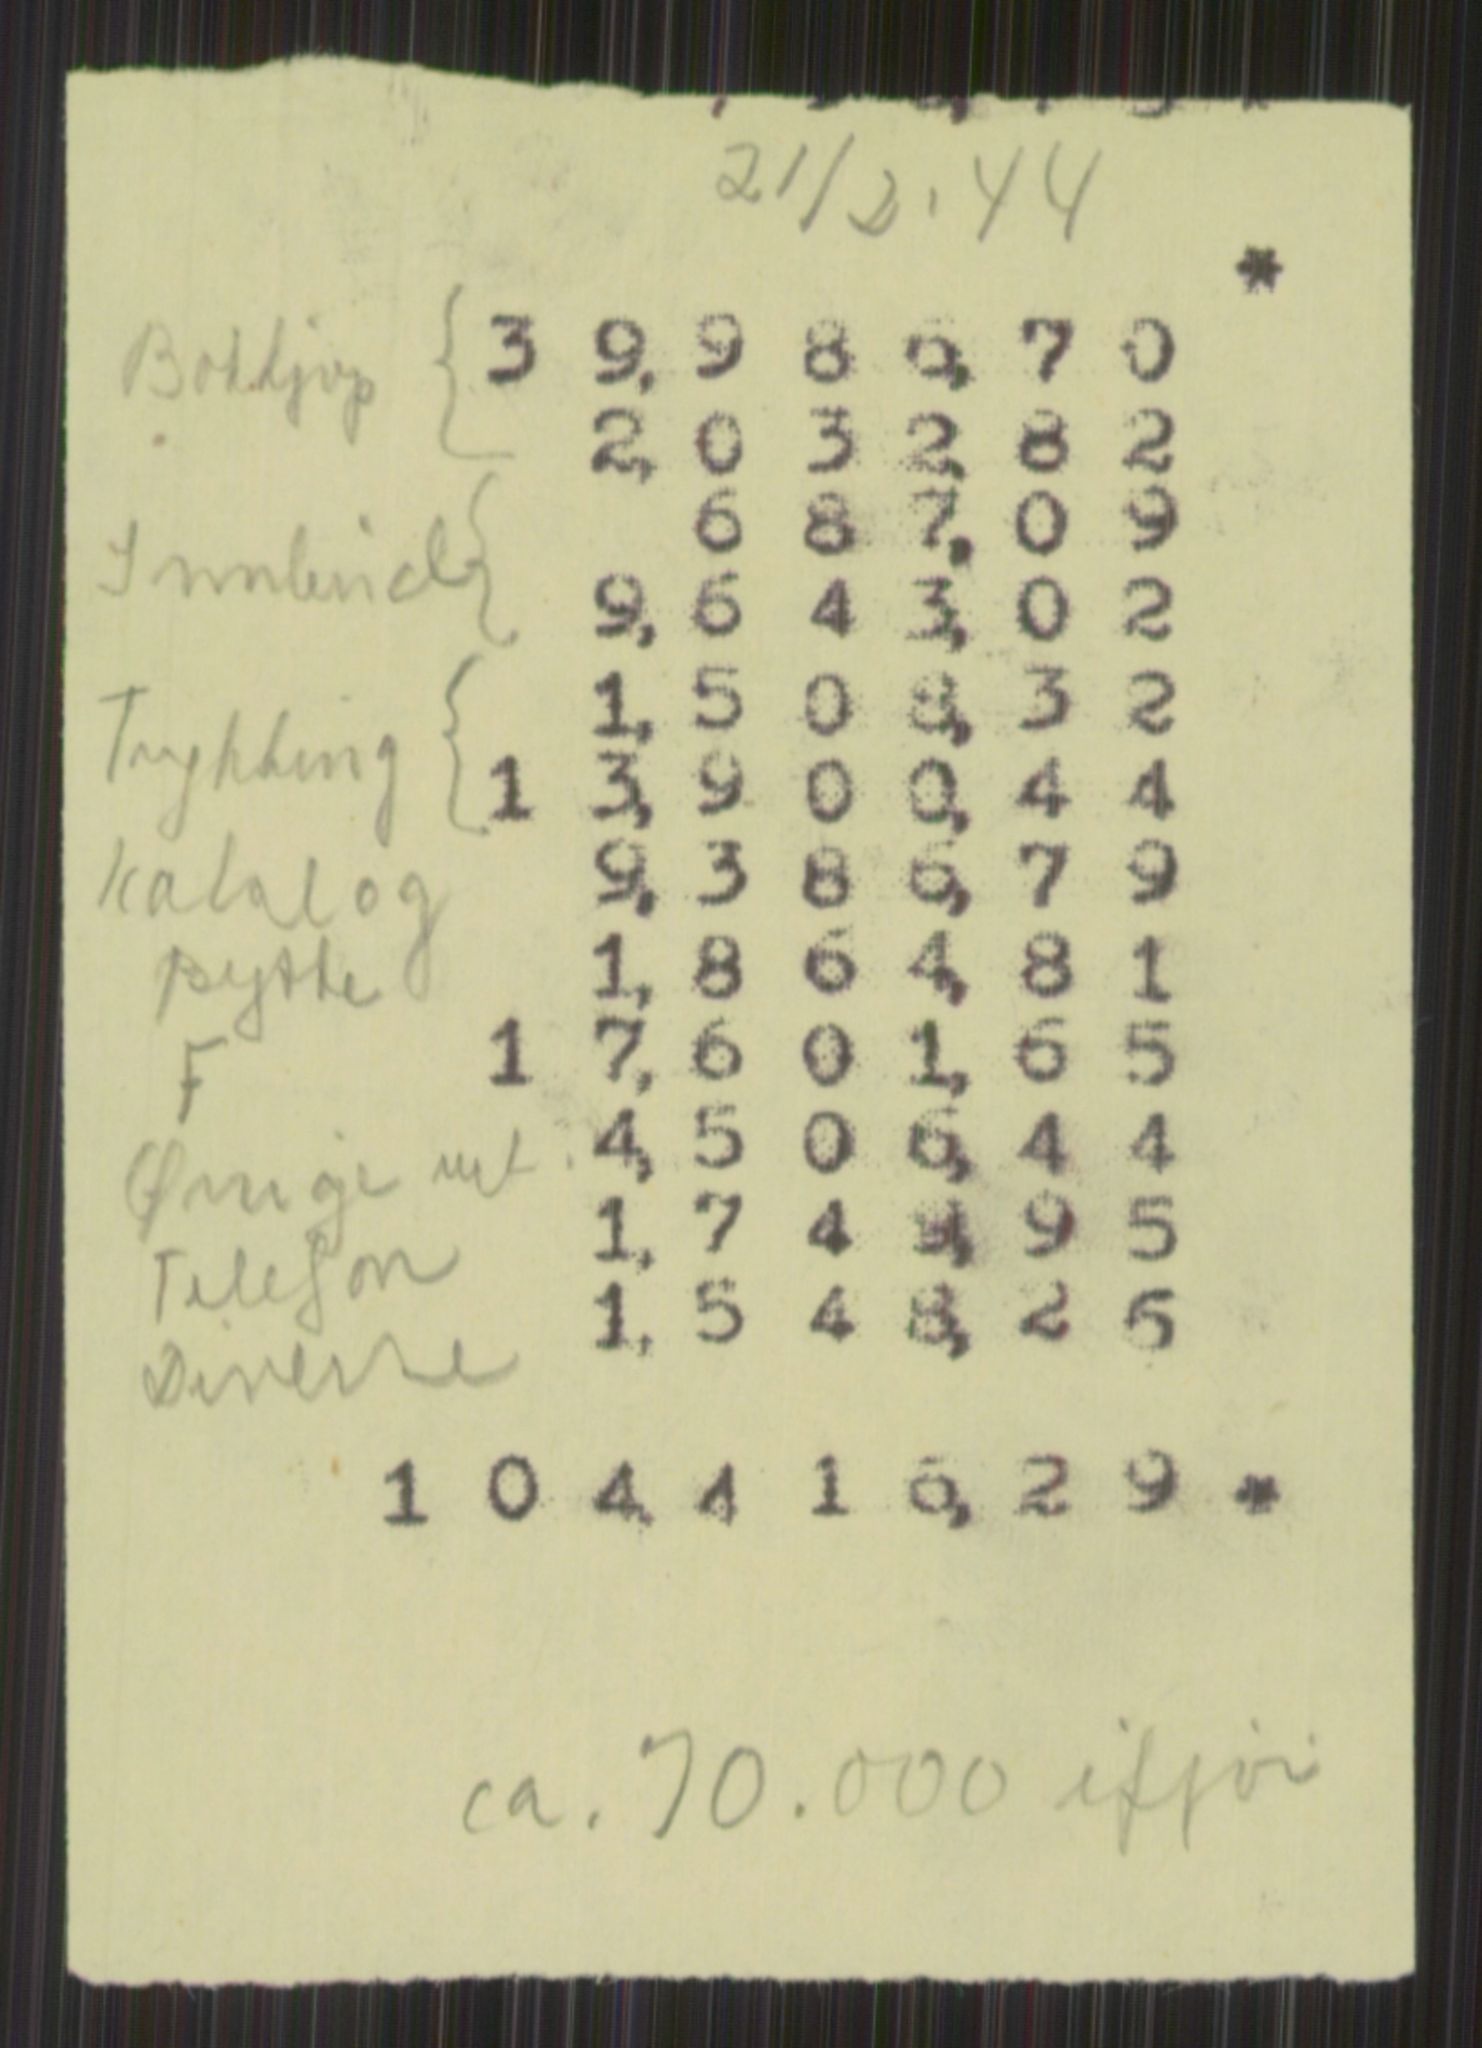 21/2.44
*
Bokkjøp { 39.986,70
2.032,82
Innbind { 687,09
9.643,02
Trykking { 1.508,32
13.900,44
Katalog 9.386,79
Bytte 1.864,81
F 17.601,65
Øvrige ut. 4.506,44
Telefon 1.749,95
Diverse 1.548,26
104.416,29 *
ca. 70.000 ifjor